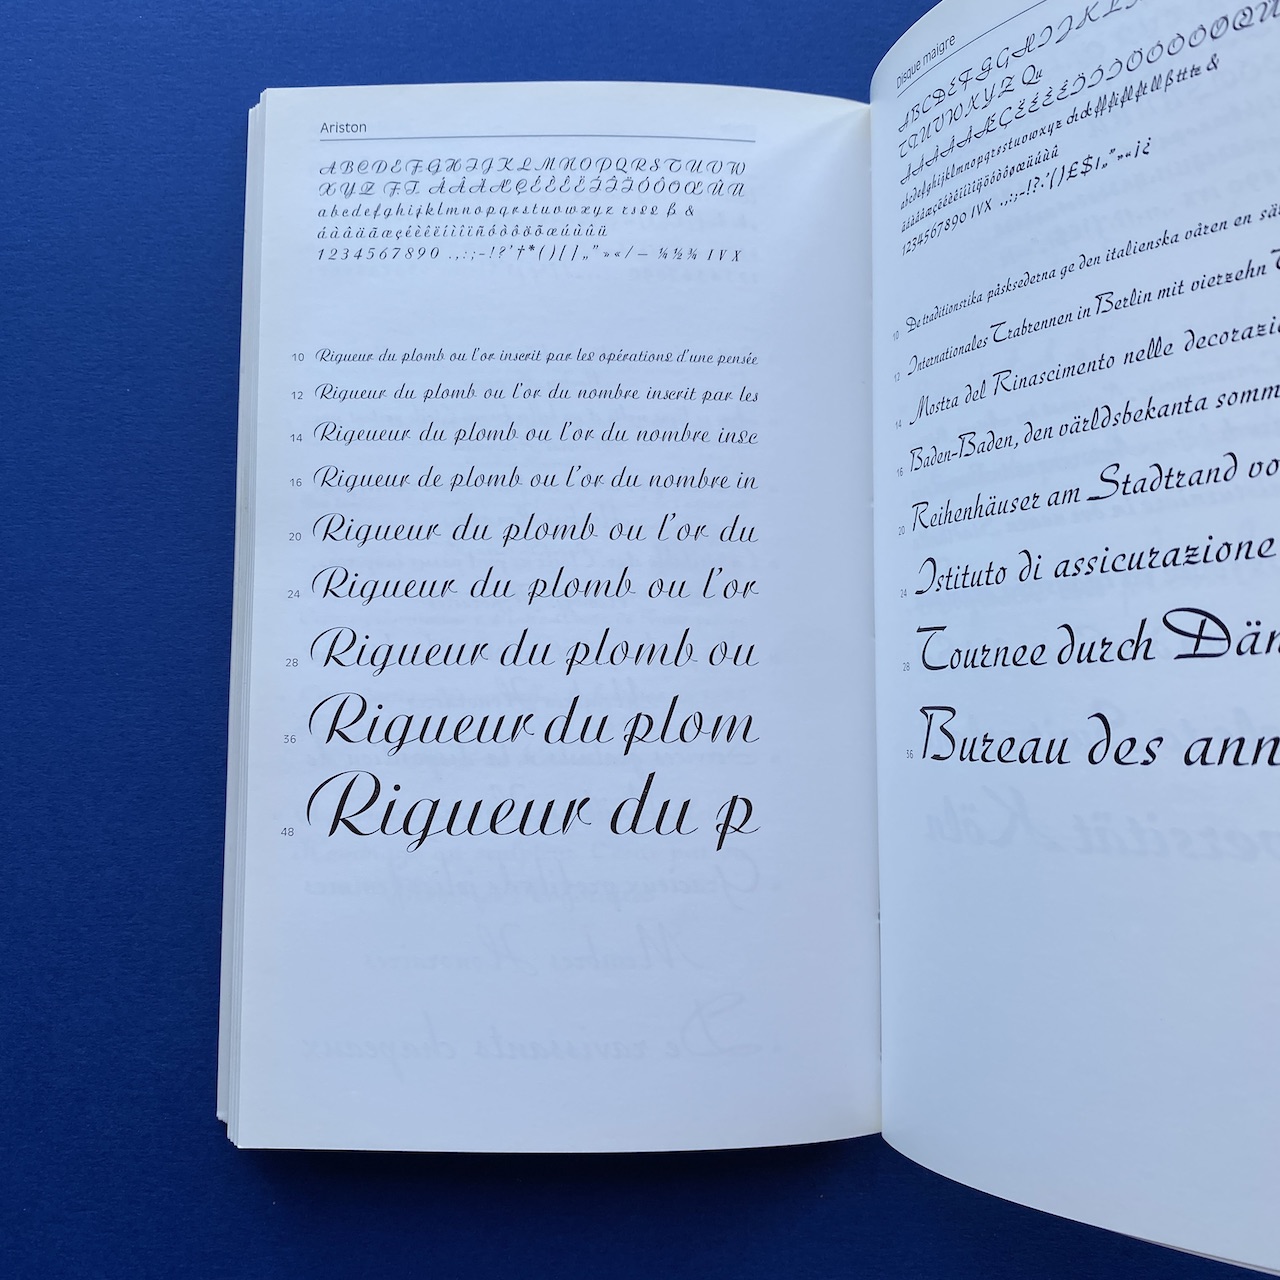 Ariston
A B C D E F G H I J K L M N O P Q R S T U V W
X Y Z
a b c d e f g h i j k l m n o p q r s t u v w x y z
1 2 3 4 5 6 7 8 9 0 . , : ; - ! ? ’ † * ( ) [ ] „ ” » « / — ¼ ½ ¾ I V X
10 Rigueur du plomb ou l’or inscrit par les opérations d’une pensée
12 Rigueur du plomb ou l’or du nombre inscrit par les
14 Rigeueur du plomb ou l’or du nombre insc
16 Rigueur de plomb ou l’or du nombre in
20 Rigueur du plomb ou l’or du
24 Rigueur du plomb ou l’or
28 Rigueur du plomb ou
36 Rigueur du plom
48 Rigueur du p
Disque maigre
T U V W X Y Z Qu
1234567890 IVX
10 De traditionsrika påsksederna ge den italienska våren en
12 Internationales Trabrennen in Berlin mit vierzehn
14 Mostra del Rinascimento nelle decorazi
16 Baden-Baden, den världsbekanta somm
20 Reihenhäuser am Stadtrand vo
24 Istituto di assicurazione
28 Tournee durch Dän
36 Bureau des ann